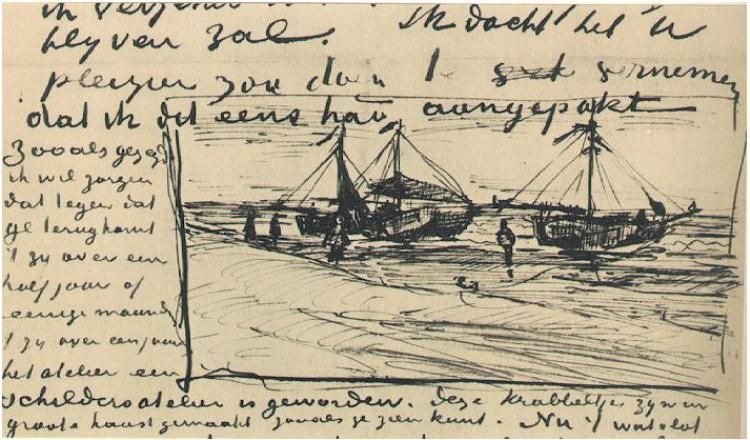 ik
blyven zal. Ik dacht het u
plezier zou doen te vernemen
dat ik dit eens had aangepakt
zooals gezegd
ik wil zorgen
dat tegen dat
ge terugkomt
't zy over een
half jaar of
eenige maand
't zy over een jaar
het atelier een
schildersatelier is geworden. Deze krabbeltjes zyn in
groote haast gemaakt zooals ge zien kunt. Nu 't wat